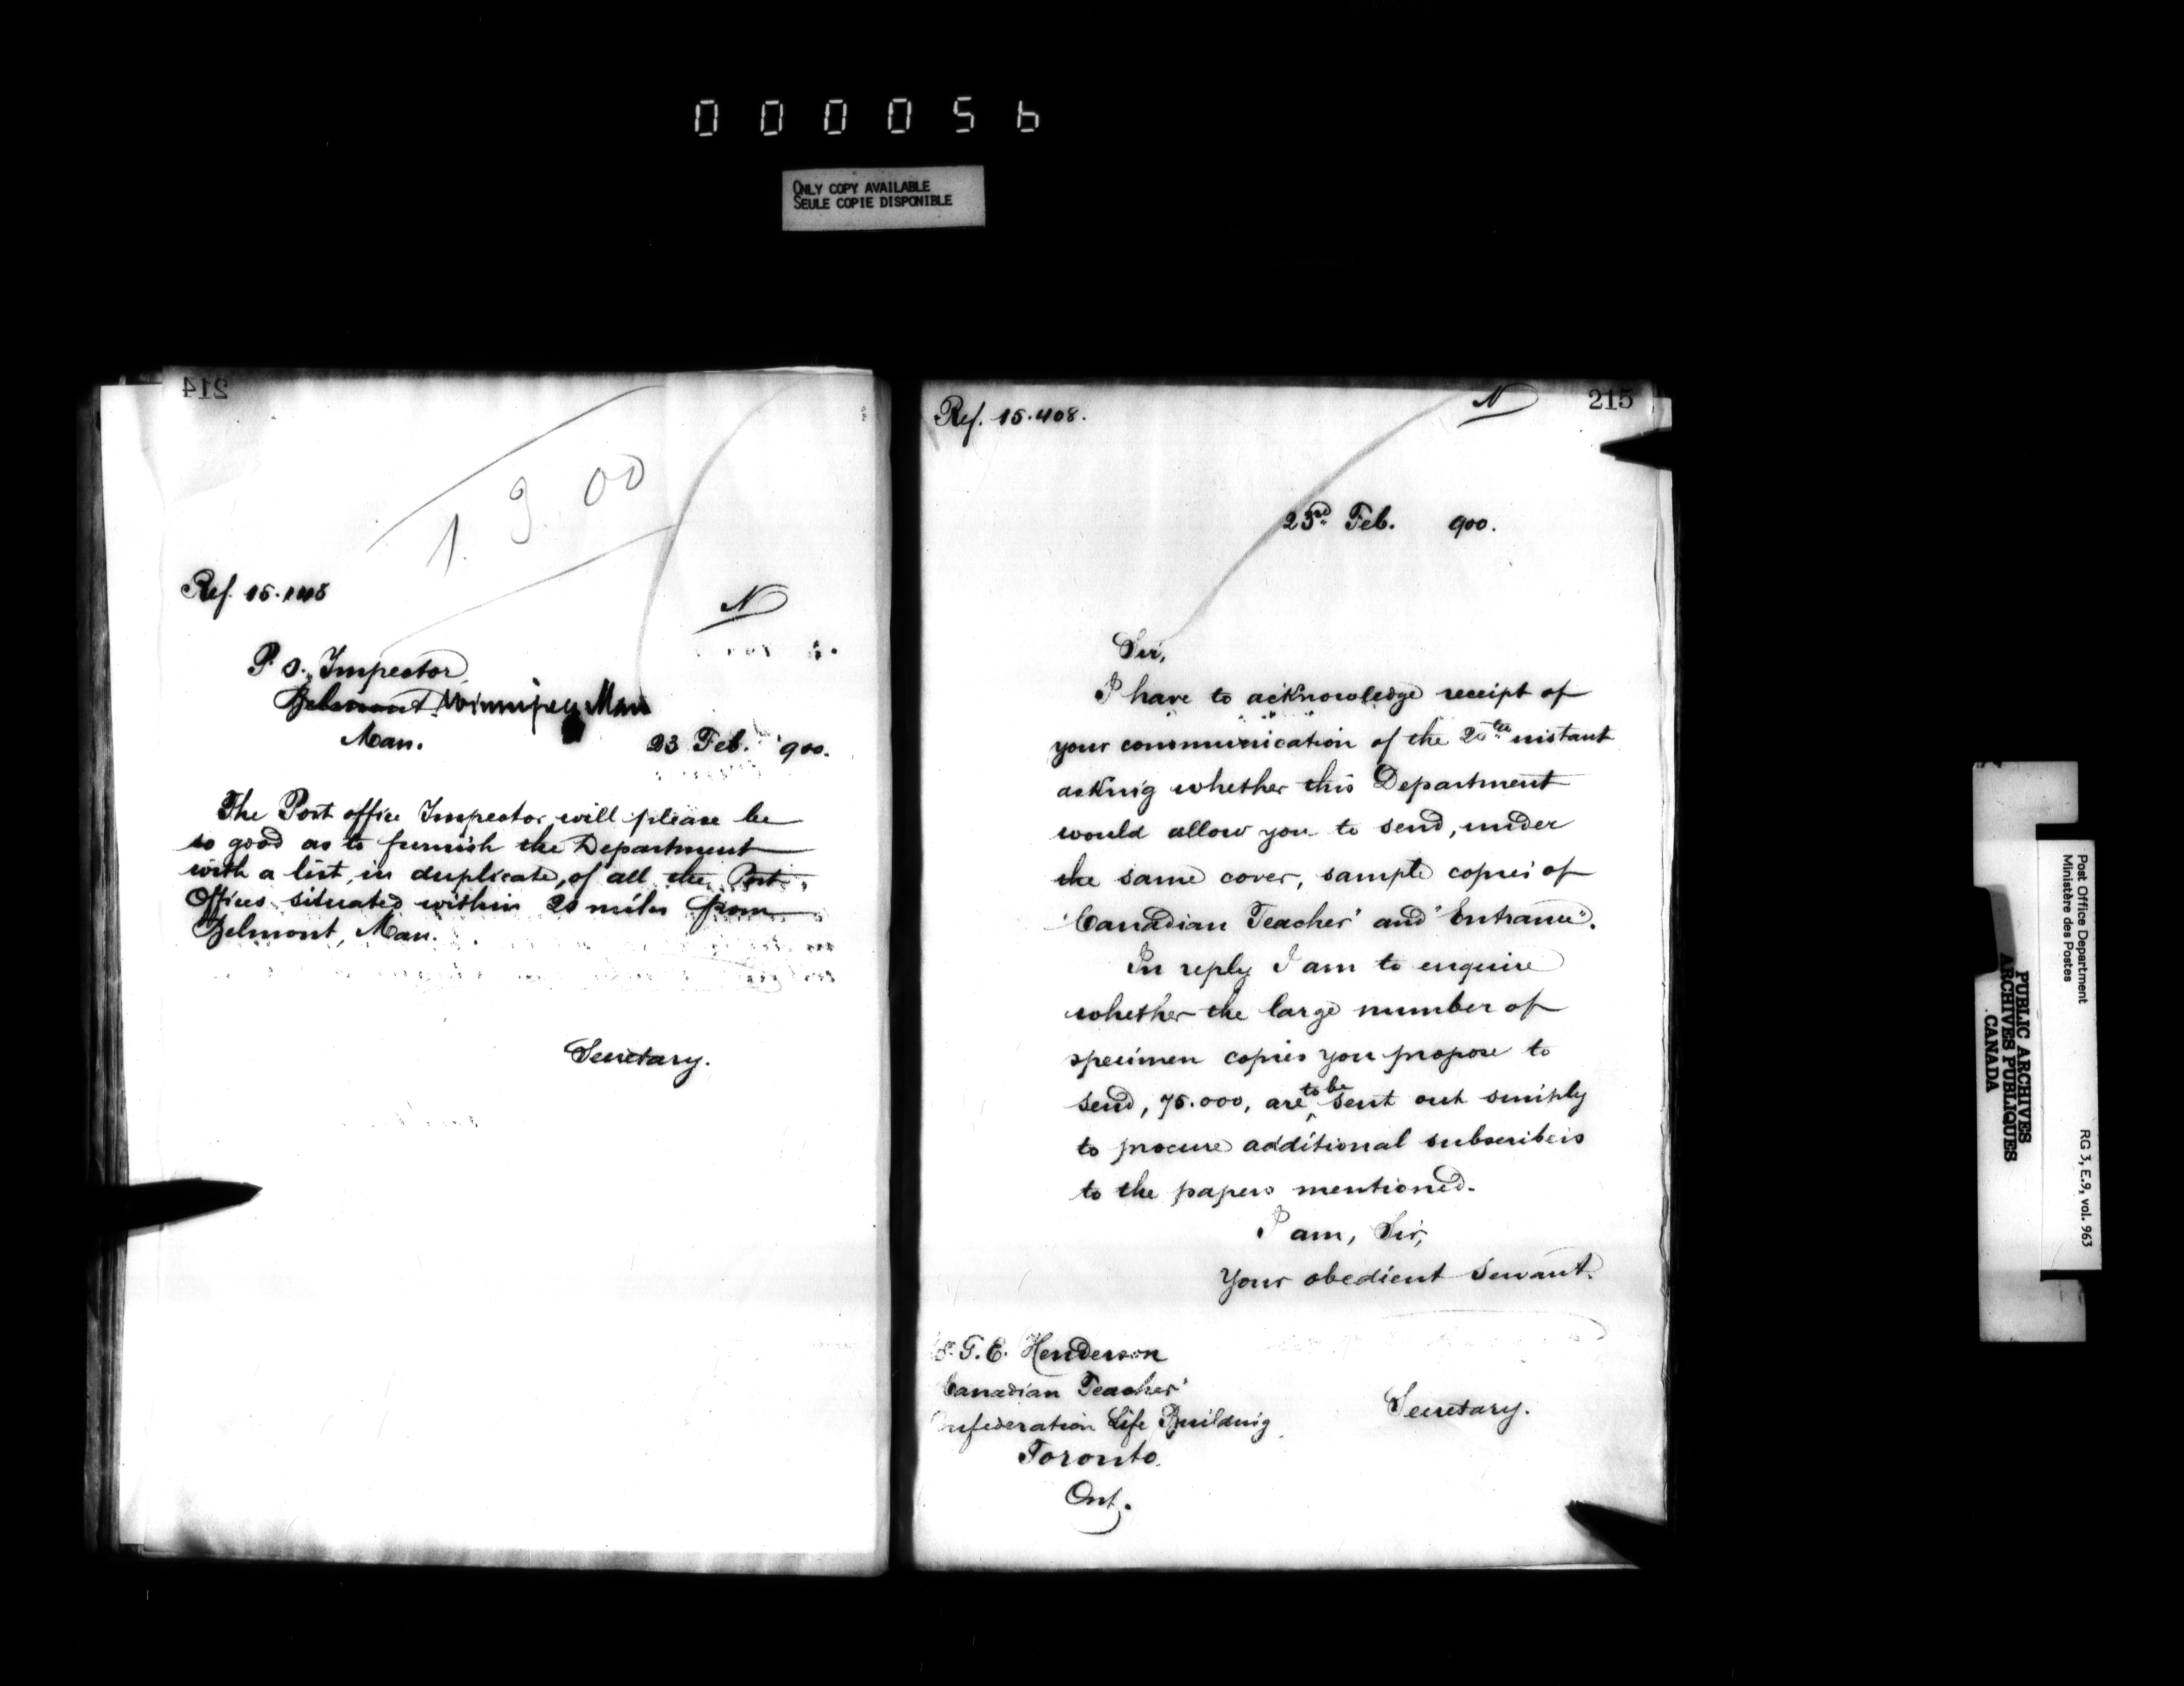 0 0 0 0 5 6
ONLY COPY AVAILABLE
SEULE COPIE DISPONIBLE
214
1. 9. 00
Ref. 15.148
N
P. O. Inspector
Belmont Winnipeg Man
Man.
23 Feb. 900.
The Post office Inspector will please be
so good as to furnish the Department
with a list, in duplicate, of all the Post
Offices situated within 20 miles from
Belmont, Man.
Secretary.
215
N
Ref. 15.408.
23rd Feb. 900.
Sir,
I have to acknowledge receipt of
your communication of the 20th instant
asking whether this Department
would allow you to send, under
the same cover, sample copies of
"Canadian Teacher" and "Entrance".
In reply I am to enquire
whether the large number of
specimen copies you propose to
send, 75.000, are to be sent out simply
to procure additional subscribers
to the papers mentioned.
I am, Sir,
Your obedient servant.
G. E. Henderson
Canadian Teacher"
Confederation Life Building
Toronto
Ont.
Secretary.
Post Office Department
Ministère des Postes
RG 3, E.9, vol. 963
PUBLIC ARCHIVES
ARCHIVES PUBLIQUES
CANADA